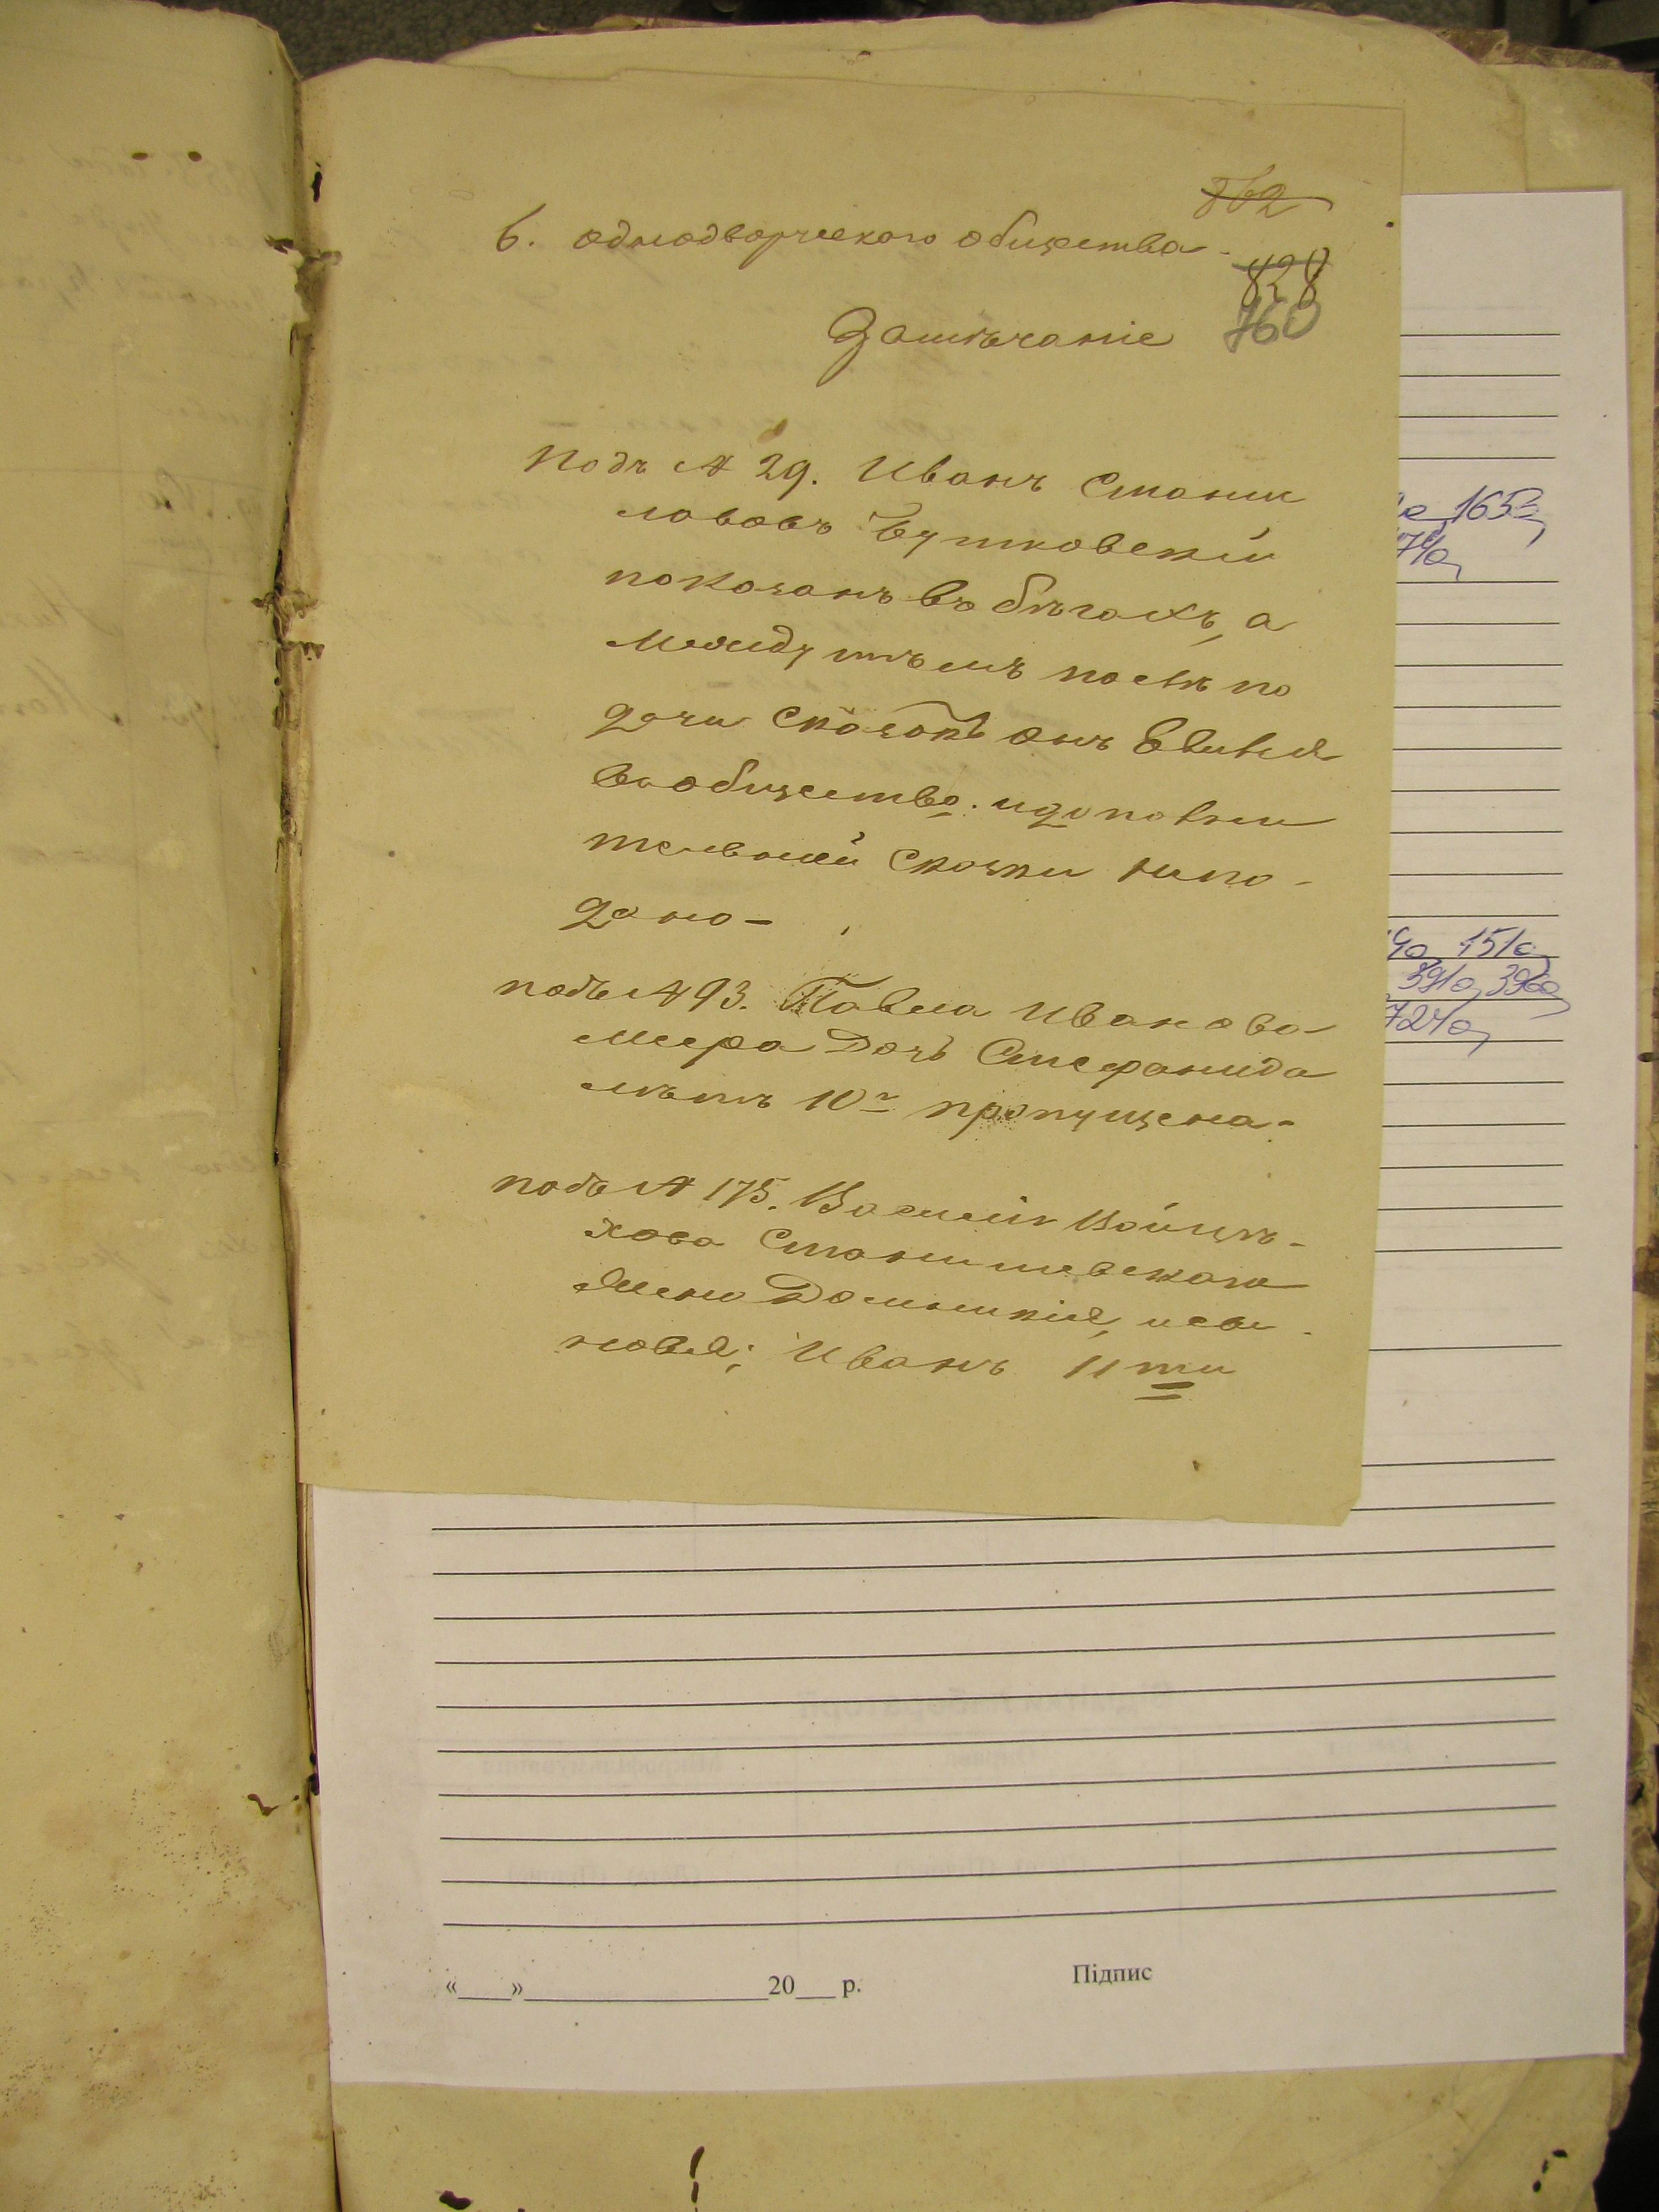 862
6. однодворческаго общества.
828
760
Замѣчаніе
подъ № 29. Иванъ Стани
лавовъ Бутковскій
показанъ въ бѣгахъ, а
между тѣмъ послѣ по
дачи сказокъ онъ явился
въ общество. и дополни
тельной сказки непо-
дано-
подъ № 93. Павла Иванова
Мира дочь Стефанида
лѣтъ 10ъ пропущена.
подъ № 175. Василій Войцѣ-
хова Станишевскаго
жена Доминикія, и сы
новья; Иванъ 11ти
165
74а
151а
391а, 396а
724а
«___»______________20___ р.
Підпис